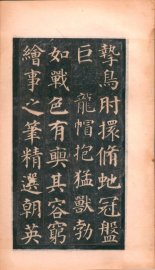 鷙鳥肘擐脩虵冠盤
巨龍帽抱猛獸勃
如戰色有輿其容窮
繪事之筆精選朝英